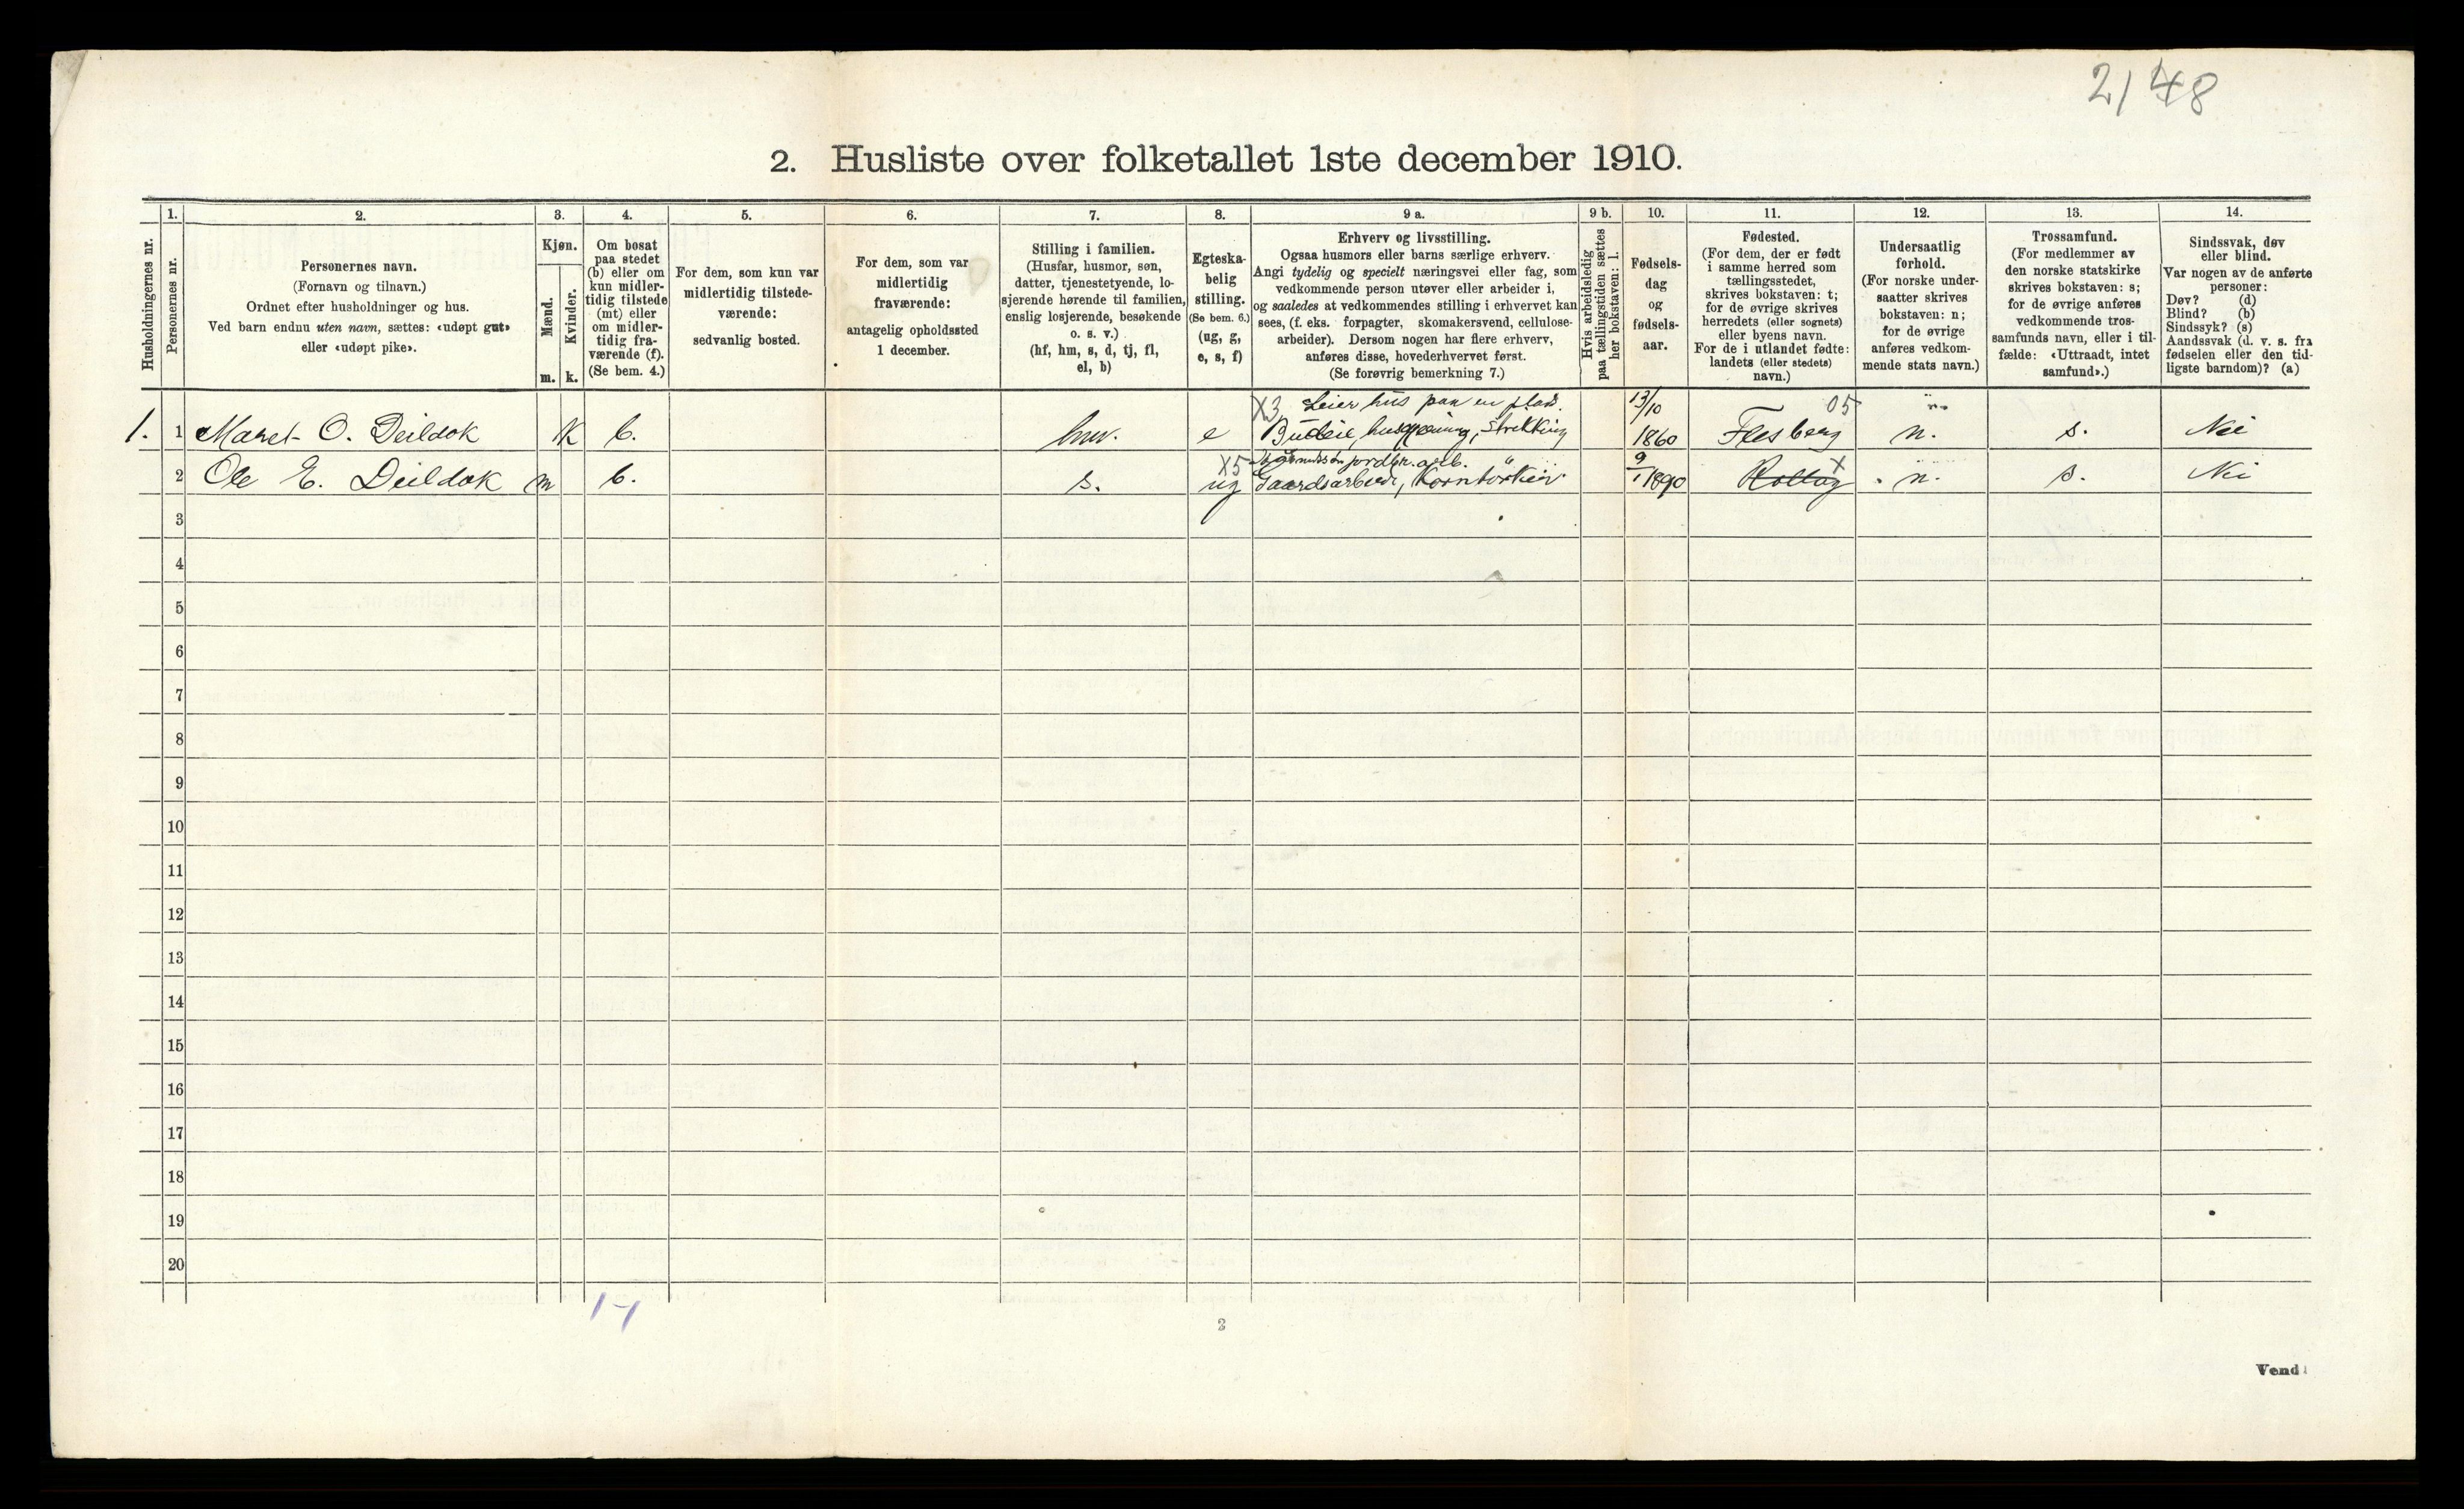 2148
2. Husliste over folketallet 1ste december 1910.
Husholdningernes nr.
1.
Personernes nr.
2.
Personernes navn.
(Fornavn og tilnavn.)
Ordnet efter husholdninger og hus.
Ved barn endnu uten navn, sættes: «udøpt gut»
eller «udøpt pike».
3.
Kjøn.
Mænd.
Kvinder.
m. k.
4.
Om bosat
paa stedet
(b) eller om
kun midler-
tidig tilstede
(mt) eller
om midler-
tidig fra-
værende (f).
(Se bem. 4.)
5.
For dem, som kun var
midlertidig tilstede-
værende:
sedvanlig bosted.
6.
For dem, som var
midlertidig
fraværende:
antagelig opholdssted
1 december.
7.
Stilling i familien.
(Husfar, husmor, søn,
datter, tjenestetyende, lo-
sjerende hørende til familien,
enslig losjerende, besøkende
o. s. v.)
(hf, hm, s, d, tj, fl,
el, b)
8.
Egteska-
belig
stilling.
(Se bem. 6.)
(ug, g,
e, s, f)
9 a.
Erhverv og livsstilling.
Ogsaa husmors eller barns særlige erhverv.
Angi tydelig og specielt næringsvei eller fag, som
vedkommende person utøver eller arbeider i,
og saaledes at vedkommendes stilling i erhvervet kan
sees, (f. eks. forpagter, skomakersvend, cellulose-
arbeider). Dersom nogen har flere erhverv,
anføres disse, hovederhvervet først.
(Se forøvrig bemerkning 7.)
9 b.
Hvis arbeidsledig
paa tællingstiden sættes
her bokstaven: l.
10.
Fødsels-
dag
og
fødsels-
aar.
11.
Fødested.
(For dem, der er født
i samme herred som
tællingsstedet,
skrives bokstaven: t;
for de øvrige skrives
herredets (eller sognets)
eller byens navn.
For de i utlandet fødte:
landets (eller stedets)
navn.)
12.
Undersaatlig
forhold.
(For norske under-
saatter skrives
bokstaven: n;
for de øvrige
anføres vedkom-
mende stats navn.)
13.
Trossamfund.
(For medlemmer av
den norske statskirke
skrives bokstaven: s;
for de øvrige anføres
vedkommende tros-
samfunds navn, eller i til-
fælde: «Uttraadt, intet
samfund».)
14.
Sindssvak, døv
eller blind.
Var nogen av de anførte
personer:
Døv? (d)
Blind? (b)
Sindssyk? (s)
Aandssvak (d. v. s. fra
fødselen eller den tid-
ligste barndom)? (a)
X3 Leier hus paa en plads. 13/10 05
1. 1 Maret O. Deildok K b. hm. e Budeie, strikking 1860 Flesberg n. s. Nei
X5 jordbr. arb. 9/1 X
2 Ole E. Deildok m b. s. ug Gaardsarbeide, 1890 Rollag n. s. Nei
3
4
5
6
7
8
9
10
11
12
13
14
15
16
17
18
19
20
1-1
2
Vend!